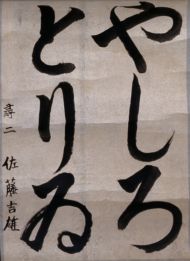 やしろ
とりゐ
尋二 佐藤吉雄